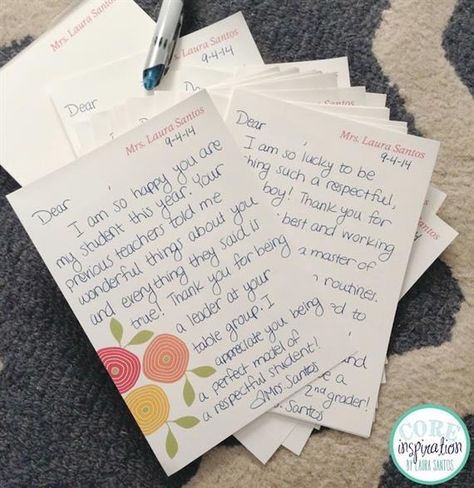 Mrs. Laura Santos
9-4-14
Dear
I am so happy you are
my student this year. Your
previous teachers told me
wonderful things about you
and everything they said is
true! Thank you for being
a leader at your
table group. I
appreciate you being
a perfect model of
a respectful student!
Mrs. Santos
Mrs. Laura Santos
9-4-14
Dear
I am so lucky to be
such a respectful,
boy! Thank you for
best and working
a master of
routines.
to
and
a
2nd grader!
Santos
Mrs. Laura Santos
9-4-14
Dear
Mrs. Laura Santos
CORE
inspiration
BY LAURA SANTOS